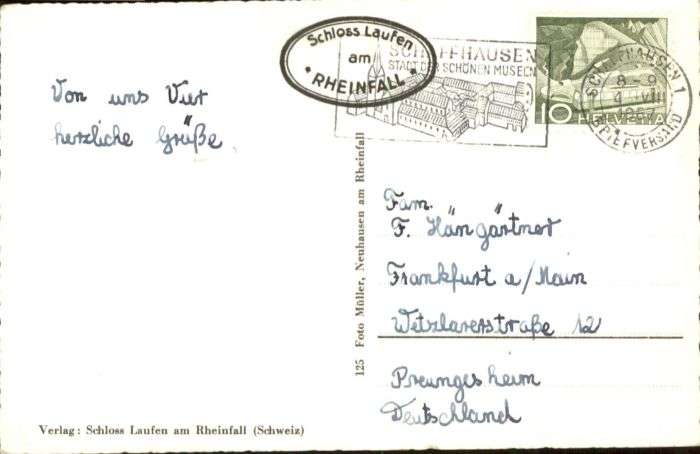 Schloss Laufen
am
RHEINFALL
SCHAFFHAUSEN
STADT DER SCHÖNEN MUSEEN
SCHAFFHAUSEN 1
8-9
VIII
BRIEFVERSAND
10 HELVETIA
Von uns Vier
herzliche Grüße
125 Foto Müller, Neuhausen am Rheinfall
Fam.
F. Hängärtner
Frankfurt a/Main
Wetzlarerstraße 12
Preungesheim
Deutschland
Verlag: Schloss Laufen am Rheinfall (Schweiz)